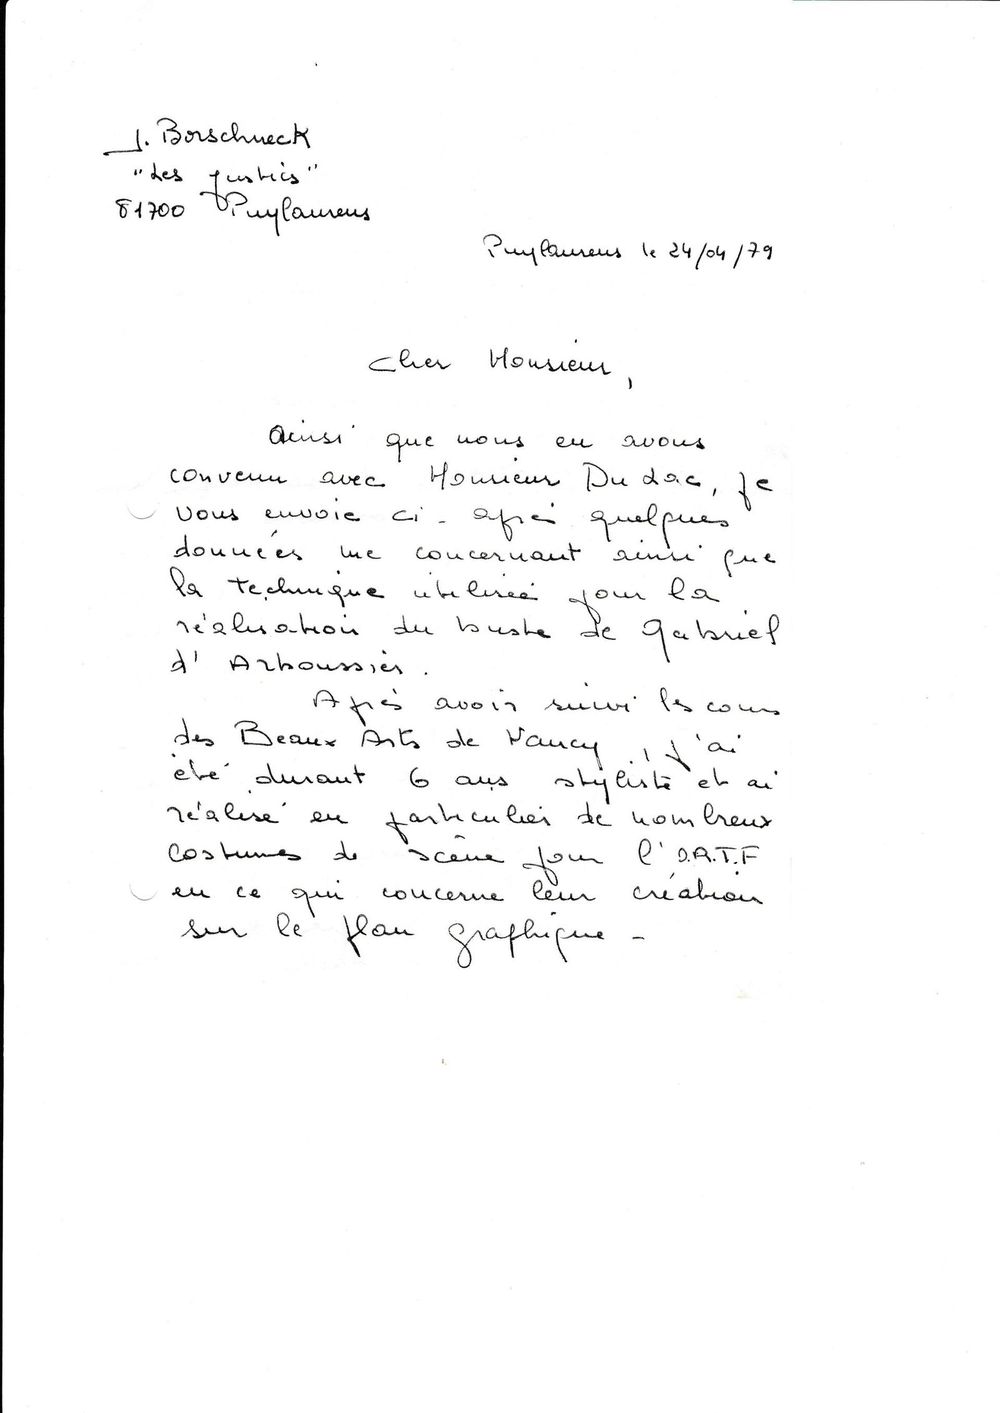 J. Borschneck
"Les justices"
81700 Puylaurens
Puylaurens le 24/04/79
Cher Monsieur,
Ainsi que nous en avons
convenu avec Monsieur Du Lac, je
vous envoie ci-après quelques
données me concernant ainsi que
la technique utilisée pour la
réalisation du buste de Gabriel
d'Arboussier.
Après avoir suivi les cours
des Beaux Arts de Nancy, j'ai
été durant 6 ans styliste et ai
réalisé en particulier de nombreux
costumes de scène pour l'O.R.T.F
en ce qui concerne leur création
sur le plan graphique -